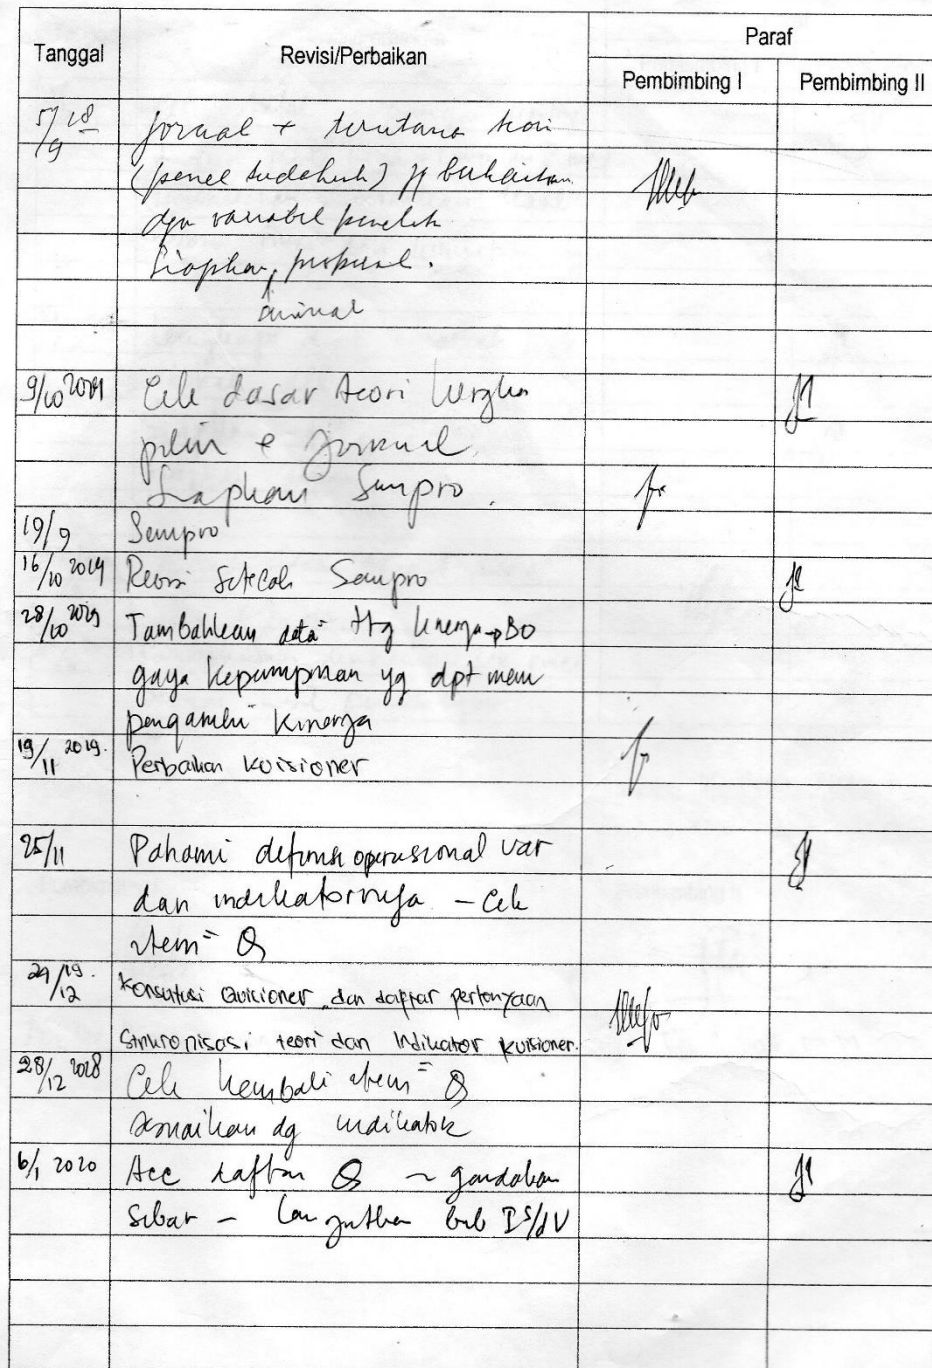 Tanggal Revisi/Perbaikan Paraf
Pembimbing I Pembimbing II
5/9 18 jornal + terutama teori
(penel terdahulu) yg berkaitan
dgn variabel penelit
Siapkan proposal.
9/10 2019 Cek dasar teori kergka
pikir & Jornal
Siapkan Sempro.
19/9 Sempro
16/10 2019 Revisi Setelah Sempro
28/10 2019 Tambahkan data² ttg kinerja → BO
gaya kepemimpinan yg dpt mem
pengaruhi kinerja
19/11 2019. Perbaikan kuisioner
25/11 Pahami definisi operasional var
dan indikatornya – Cek
item² Q
24/12 19. Konsultasi Quisioner dan daftar pertanyaan
Sinkronisasi teori dan Indikator kuisioner.
28/12 2018 Cek kembali item² Q
sesuaikan dg indikator
6/1 2020 Acc daftar Q ~ gandakan
Sebar – lanjutkan bab